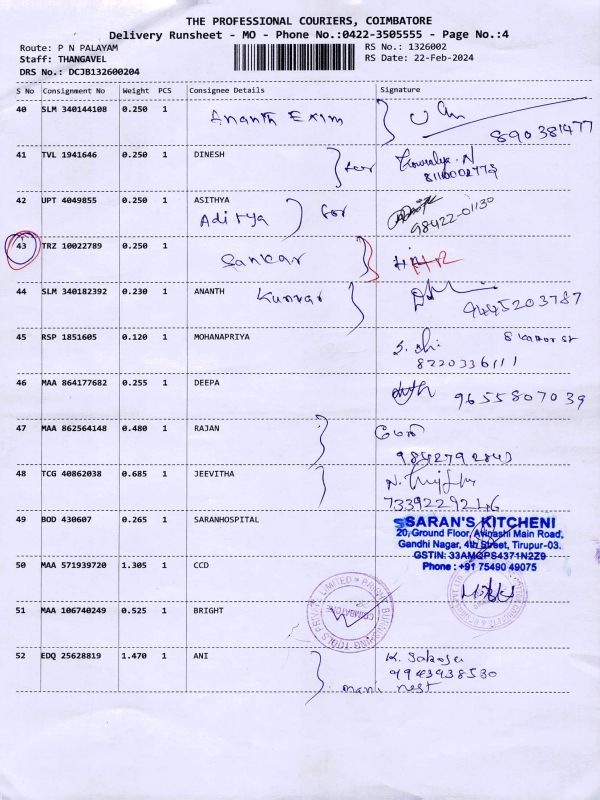 THE PROFESSIONAL COURIERS, COIMBATORE
Delivery Runsheet - MO - Phone No.:0422-3505555 - Page No.:4
Route: P N PALAYAM
RS No.: 1326002
Staff: THANGAVEL
RS Date: 22-Feb-2024
DRS No.: DCJB132600204
S No Consignment No Weight PCS Consignee Details Signature
40 SLM 340144108 0.250 1 Ananth Exim
890381477
41 TVL 1941646 0.250 1 DINESH for
8110002773
42 UPT 4049855 0.250 1 ASITHYA
Aditya for
98422-01130
43 TRZ 10022789 0.250 1 Sankar
44 SLM 340182392 0.230 1 ANANTH Kumar
9445203787
45 RSP 1851605 0.120 1 MOHANAPRIYA
8220336111
46 MAA 864177682 0.255 1 DEEPA 9655807039
47 MAA 862564148 0.480 1 RAJAN
9842792843
48 TCG 40862038 0.685 1 JEEVITHA
7339229246
49 BOD 430607 0.265 1 SARANHOSPITAL
SARAN'S KITCHENI
20,Ground Floor, Avinashi Main Road,
Gandhi Nagar, 4th Street, Tirupur-03.
GSTIN: 33AMGPS4371N2Z9
Phone : +91 75490 49075
50 MAA 571939720 1.305 1 CCD
51 MAA 106740249 0.525 1 BRIGHT
COIMBATORE
52 EDQ 25628819 1.470 1 ANI
9943938530
mani nest